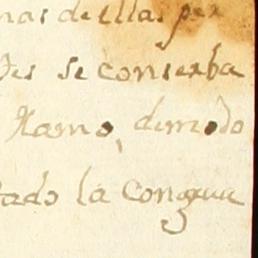 nas de ellas per
des se conserba
llamo, de modo
tado la congrua